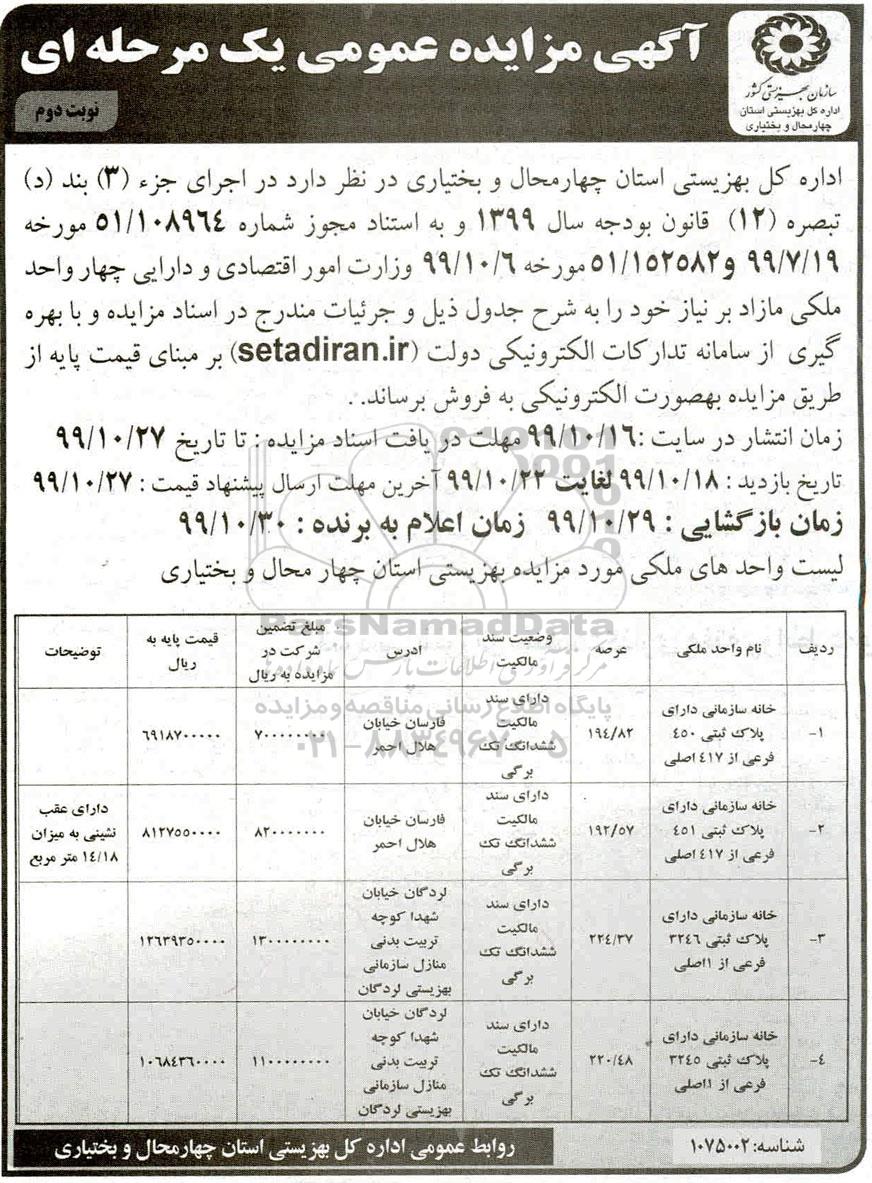 آگهی مزایده عمومی یک مرحله ای
نوبت دوم
سازمان بهزیستی کشور
اداره کل بهزیستی استان
چهارمحال و بختیاری
اداره کل بهزیستی استان چهارمحال و بختیاری در نظر دارد در اجرای جزء (۳) بند (د)
تبصره (۱۲) قانون بودجه سال ۱۳۹۹ و به استناد مجوز شماره ۵۱/۱۰۸۹۶۴ مورخه
۹۹/۷/۱۹ و۵۱/۱۵۲۵۸۲ مورخه ۹۹/۱۰/۶ وزارت امور اقتصادی و دارایی چهار واحد
ملکی مازاد بر نیاز خود را به شرح جدول ذیل و جزئیات مندرج در اسناد مزایده و با بهره
گیری از سامانه تدارکات الکترونیکی دولت (setadiran.ir) بر مبنای قیمت پایه از
طریق مزایده بهصورت الکترونیکی به فروش برساند. .
زمان انتشار در سایت :۹۹/۱۰/۱۶ مهلت دریافت اسناد مزایده : تا تاریخ ۹۹/۱۰/۲۷
تاریخ بازدید : ۹۹/۱۰/۱۸ لغایت ۹۹/۱۰/۲۲ آخرین مهلت ارسال پیشنهاد قیمت : ۹۹/۱۰/۲۷
زمان بازگشایی : ۹۹/۱۰/۲۹ زمان اعلام به برنده : ۹۹/۱۰/۳۰
لیست واحد های ملکی مورد مزایده بهزیستی استان چهار محال و بختیاری
ParsNamadData
مرکز فرآوری اطلاعات پارس نماد داده ها
پایگاه اطلاع رسانی مناقصه و مزایده
۰۲۱-۸۸۳۴۹۶۷۰-۵
ردیف
نام واحد ملکی
عرصه
وضعیت سند
مالکیت
ادرس
مبلغ تضمین
شرکت در
مزایده به ریال
قیمت پایه به
ریال
توضیحات
۱-
خانه سازمانی دارای
پلاک ثبتی ۴۵۰
فرعی از ۴۱۷ اصلی
۱۹۴/۸۲
دارای سند
مالکیت
ششدانگ تک
برگی
فارسان خیابان
هلال احمر
۷۰۰۰۰۰۰۰۰
۶۹۱۸۷۰۰۰۰۰
۲-
خانه سازمانی دارای
پلاک ثبتی ۴۵۱
فرعی از ۴۱۷ اصلی
۱۹۲/۵۷
دارای سند
مالکیت
ششدانگ تک
برگی
فارسان خیابان
هلال احمر
۸۲۰۰۰۰۰۰۰
۸۱۲۷۵۵۰۰۰۰
دارای عقب
نشینی به میزان
۱۴/۱۸ متر مربع
۳-
خانه سازمانی دارای
پلاک ثبتی ۳۲۴۶
فرعی از ۱اصلی
۲۲۴/۳۷
دارای سند
مالکیت
ششدانگ تک
برگی
لردگان خیابان
شهدا کوچه
تربیت بدنی
منازل سازمانی
بهزیستی لردگان
۱۳۰۰۰۰۰۰۰۰
۱۲۶۳۹۳۵۰۰۰۰
۴-
خانه سازمانی دارای
پلاک ثبتی ۳۲۴۵
فرعی از ۱اصلی
۲۲۰/۴۸
دارای سند
مالکیت
ششدانگ تک
برگی
لردگان خیابان
شهدا کوچه
تربیت بدنی
منازل سازمانی
بهزیستی لردگان
۱۱۰۰۰۰۰۰۰۰
۱۰۶۸۴۳۶۰۰۰۰
شناسه: ۱۰۷۵۰۰۲
روابط عمومی اداره کل بهزیستی استان چهارمحال و بختیاری